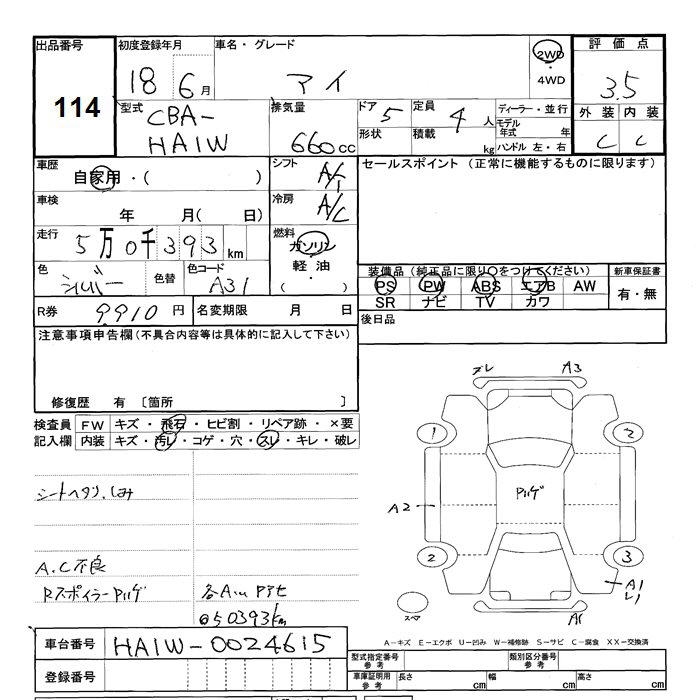 出品番号 初度登録年月 車名・グレード 評価点
114 18 6月 アイ 2WD ・ 4WD 3.5
型式 CBA- HA1W 排気量 660cc ドア 5 定員 4人 ディーラー・並行 外装 内装
形状 積載 kg モデル年式 年 ハンドル 左・右 C C
車歴 自家用・( ) シフト A/T セールスポイント (正常に機能するものに限ります)
車検 年 月( 日) 冷房 A/C
走行 5万0千393km 燃料 ガソリン・軽油・( )
色 シルバー 色替 色コード A31
装備品 (純正品に限り○をつけてください) 新車保証書
PS PW ABS エアB AW 有・無
SR ナビ TV カワ
R券 9910円 名変期限 月 日 後日品
注意事項申告欄(不具合内容等は具体的に記入して下さい)
修復歴 有 〔箇所 〕
検査員記入欄 FW キズ・飛石・ヒビ割・リペア跡・×要
内装 キズ・汚レ・コゲ・穴・スレ・キレ・破レ
ズレ A3
1 2
シートヘタリ.しみ
A2
2 3
A.C不良
RスポイラーPハゲ
@50393km
A1
スペア
A1
A－キズ E－エクボ U－凹み W－補修跡 S－サビ C－腐食 XX－交換済
車台番号 HA1W-0024615
登録番号
型式指定番号 参考 類別区分番号 参考
車庫証明用 参考 長さ cm 幅 cm 高さ cm